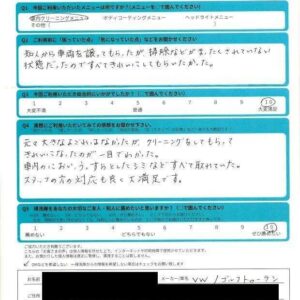 Q1 今回ご利用いただいたメニューは何ですか?(メニューを○で囲んでください)
車内クリーニングメニュー ボディコーティングメニュー ヘッドライトメニュー
その他(
Q2 ご利用前に「困っていた点」「気になっていた点」などをお聞かせください
知人から車両を譲ってもらったが、掃除などがまったくされていない
状態だったのですべてきれいにしてもらいたかった。
0 1 2 3 4 5 6 7 8 9 10
大変不満 普通 大変満足
Q4 実際にご利用いただいてみての感想をお聞かせください
元々大きなよごれはなかったが、クリーニングをしてもらって
きれいになったのが一目でわかった。
車内のにおい、うっすらとしたしみなどすべて取れていた。
スタッフの方の対応も良く大満足です。
0 1 2 3 4 5 6 7 8 9 10
薦めない どちらでもない ぜひ薦めたい
ご協力いただき有難うございます。
お名前
メーカー/車名 VW / ゴルフトゥーラン